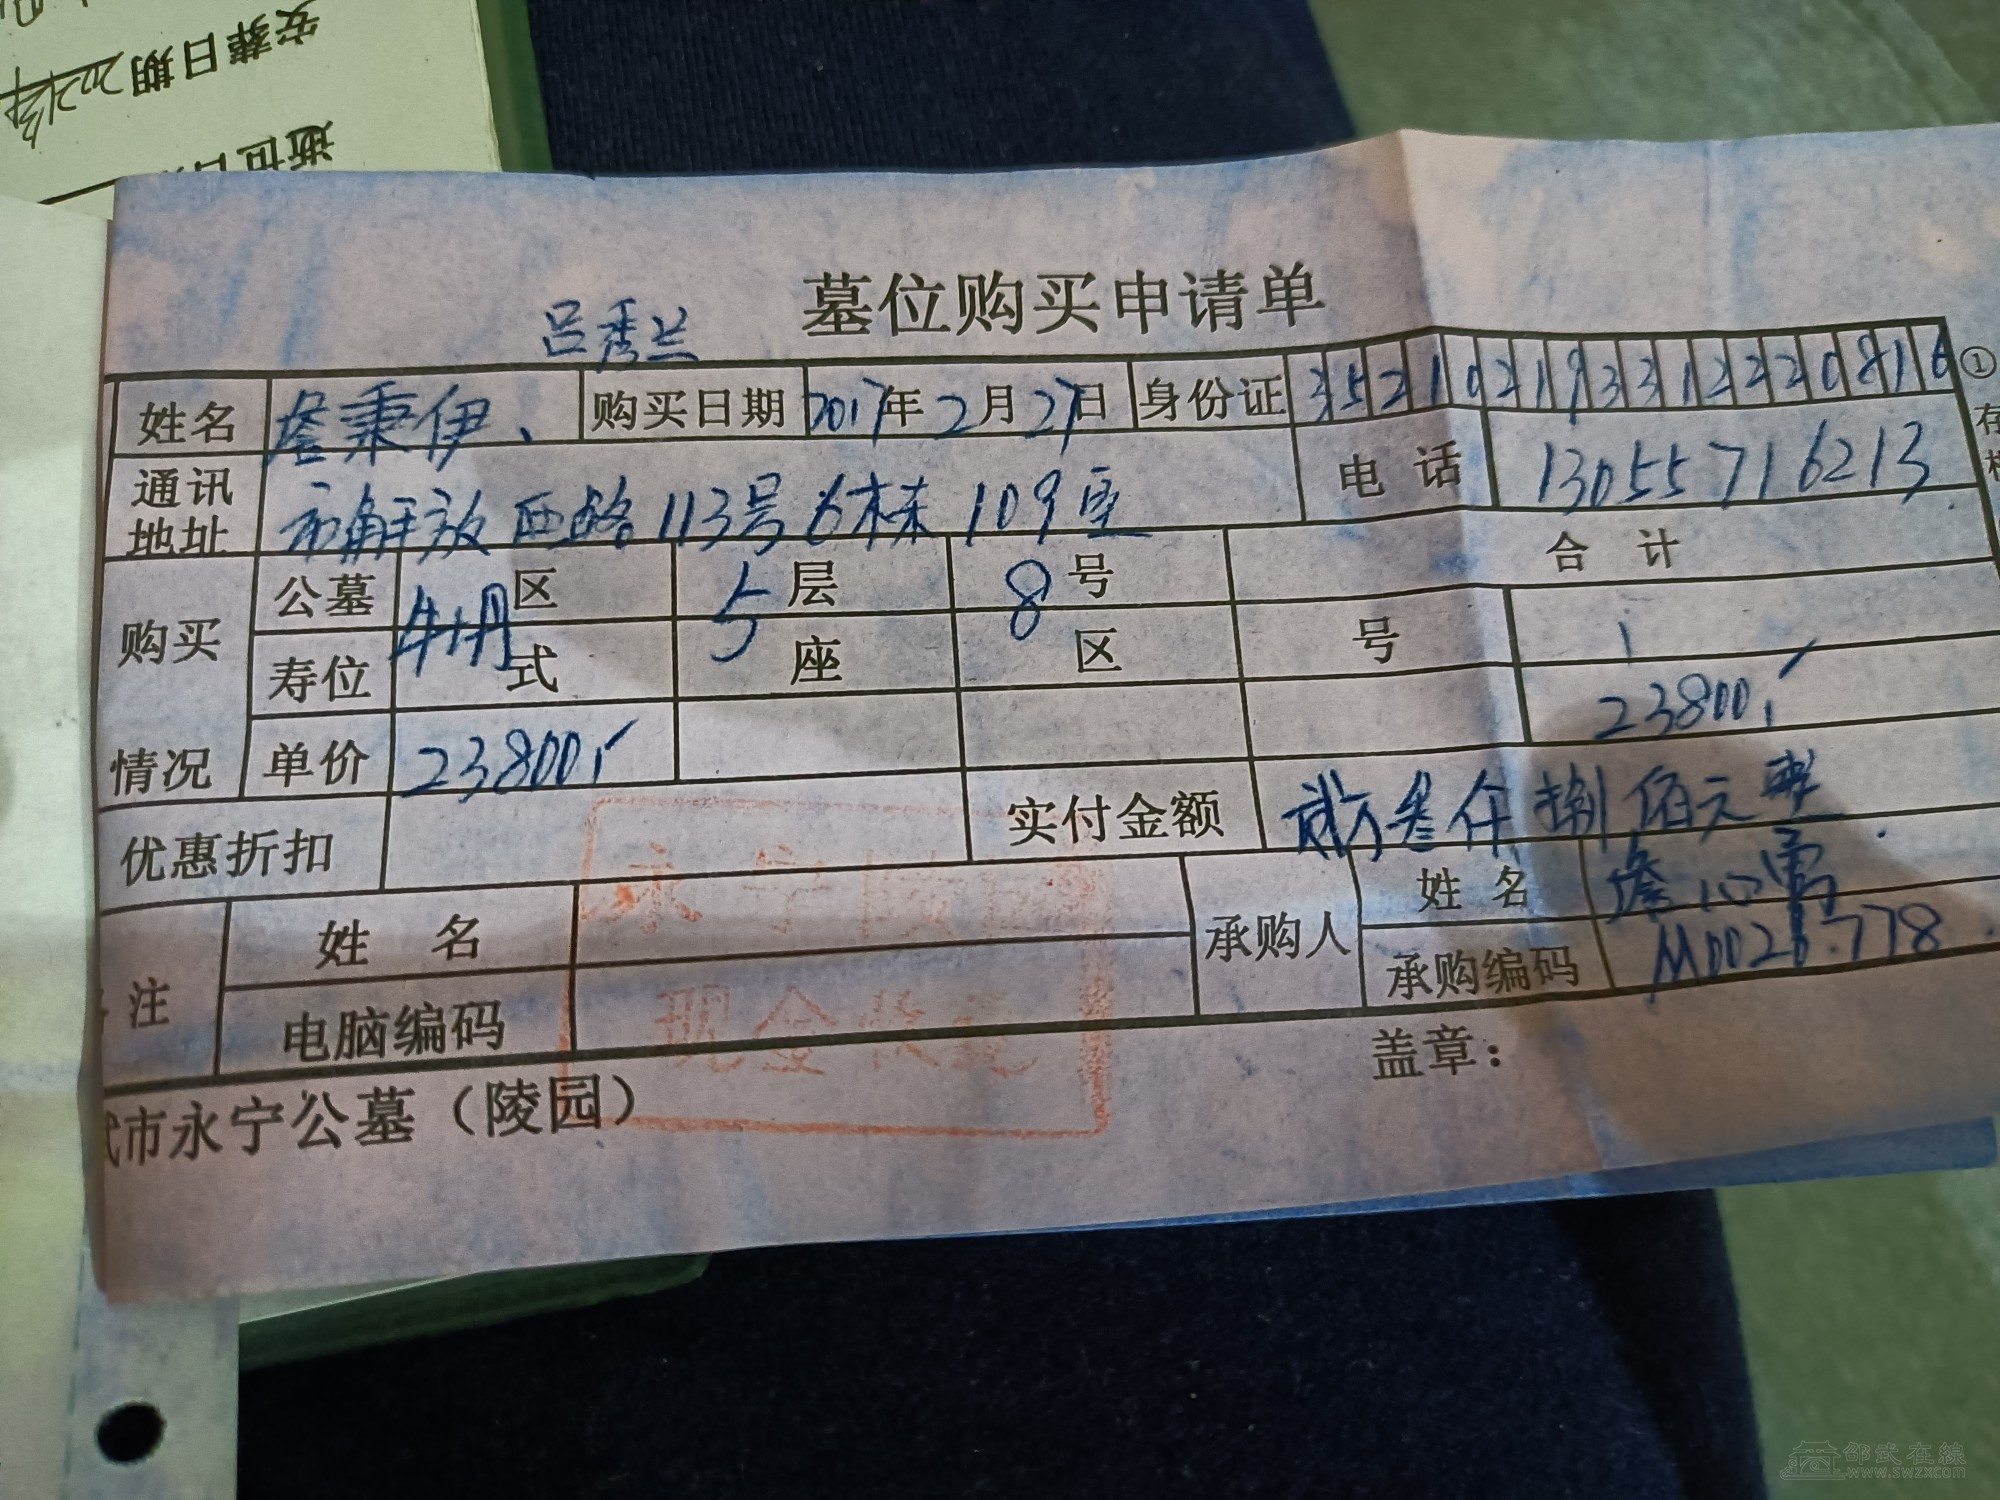 安葬日期2021年
逝世日
墓位购买申请单
吕秀兰
姓名 詹秉伊、 购买日期 2017年2月27日 身份证 352102193312220816
①
存
通讯地址 市解放西路113号6栋109室 电话 13055716213
购买情况
公墓 牡丹区 5层 8号 合计
寿位 式 座 区 号 1
单价 23800, 23800,
优惠折扣 实付金额 贰万叁仟捌佰元整.
注 姓名 承购人 姓名 詹
电脑编码 承购编码
永宁陵园
现金收讫
武市永宁公墓(陵园) 盖章:
邵武在線
www.swzx.com